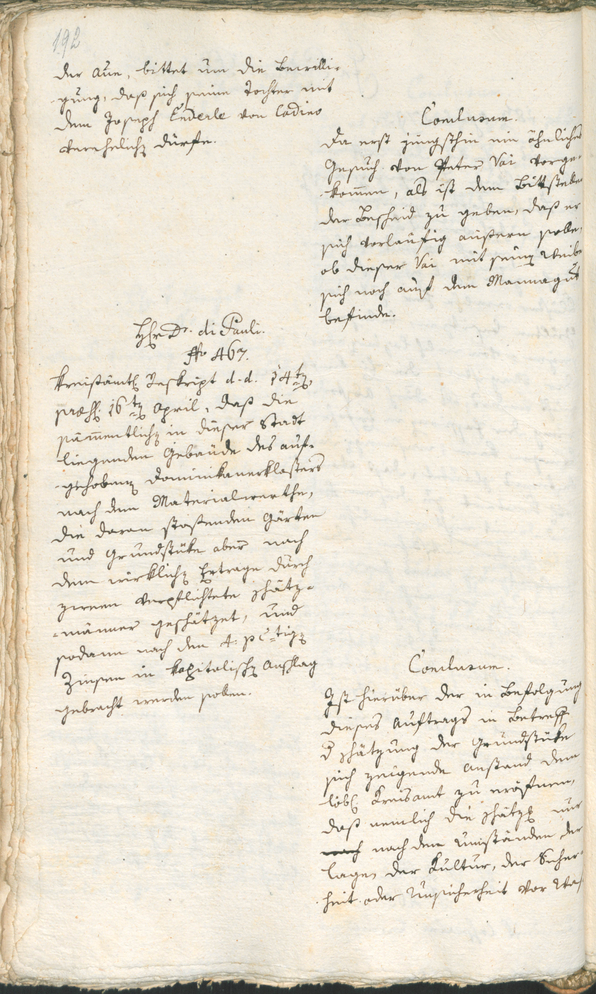 192
der Aue, bittet um die Bewilli-
gung, daß sich seine Tochter mit
dem Joseph Enderle von Cadino
verehelichen dürfe.
Conclusum.
Da erst jüngsthin ein ähnliches
Gesuch von Peter Vai vorge-
kommen, als ist dem Bittsteller
der Bescheid zu geben, daß er
sich vorläufig äußern solle,
ob dieser Vai mit seinem Weibe
sich noch auf dem Mannagut
befinde.
Hr Dr. di Pauli.
No 467.
Kreisämtl Reskript d. d. 14ten
præs. 16ten April, daß die
sämmentlichen in dieser Stadt
liegenden Gebäude des auf-
gehobenen Dominikanerklosters
nach dem Materialwerthe,
die daran stoßenden Gärten
und Grundstüke aber nach
dem wirklichen Ertrage durch
zween verpflichtete Schätz-
männer geschätzet, und
sodann nach den 4. pC-tigen
Zinsen in kapitalischen Anschlag
gebracht werden sollen.
Conclusum.
Ist hierüber der in Befolgung
dieses Auftrags in Betreff
d Schätzung der Grundstüke
sich zeigende Anstand dem
löbl Kreisamt zu eröffnen,
daß nemlich die Schätzer nur
nach dem Umständen der
Lage, der Kultur, der Sicher-
heit oder Unsicherheit vor Was-